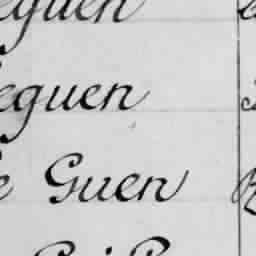 eguen
eguen
e Guen